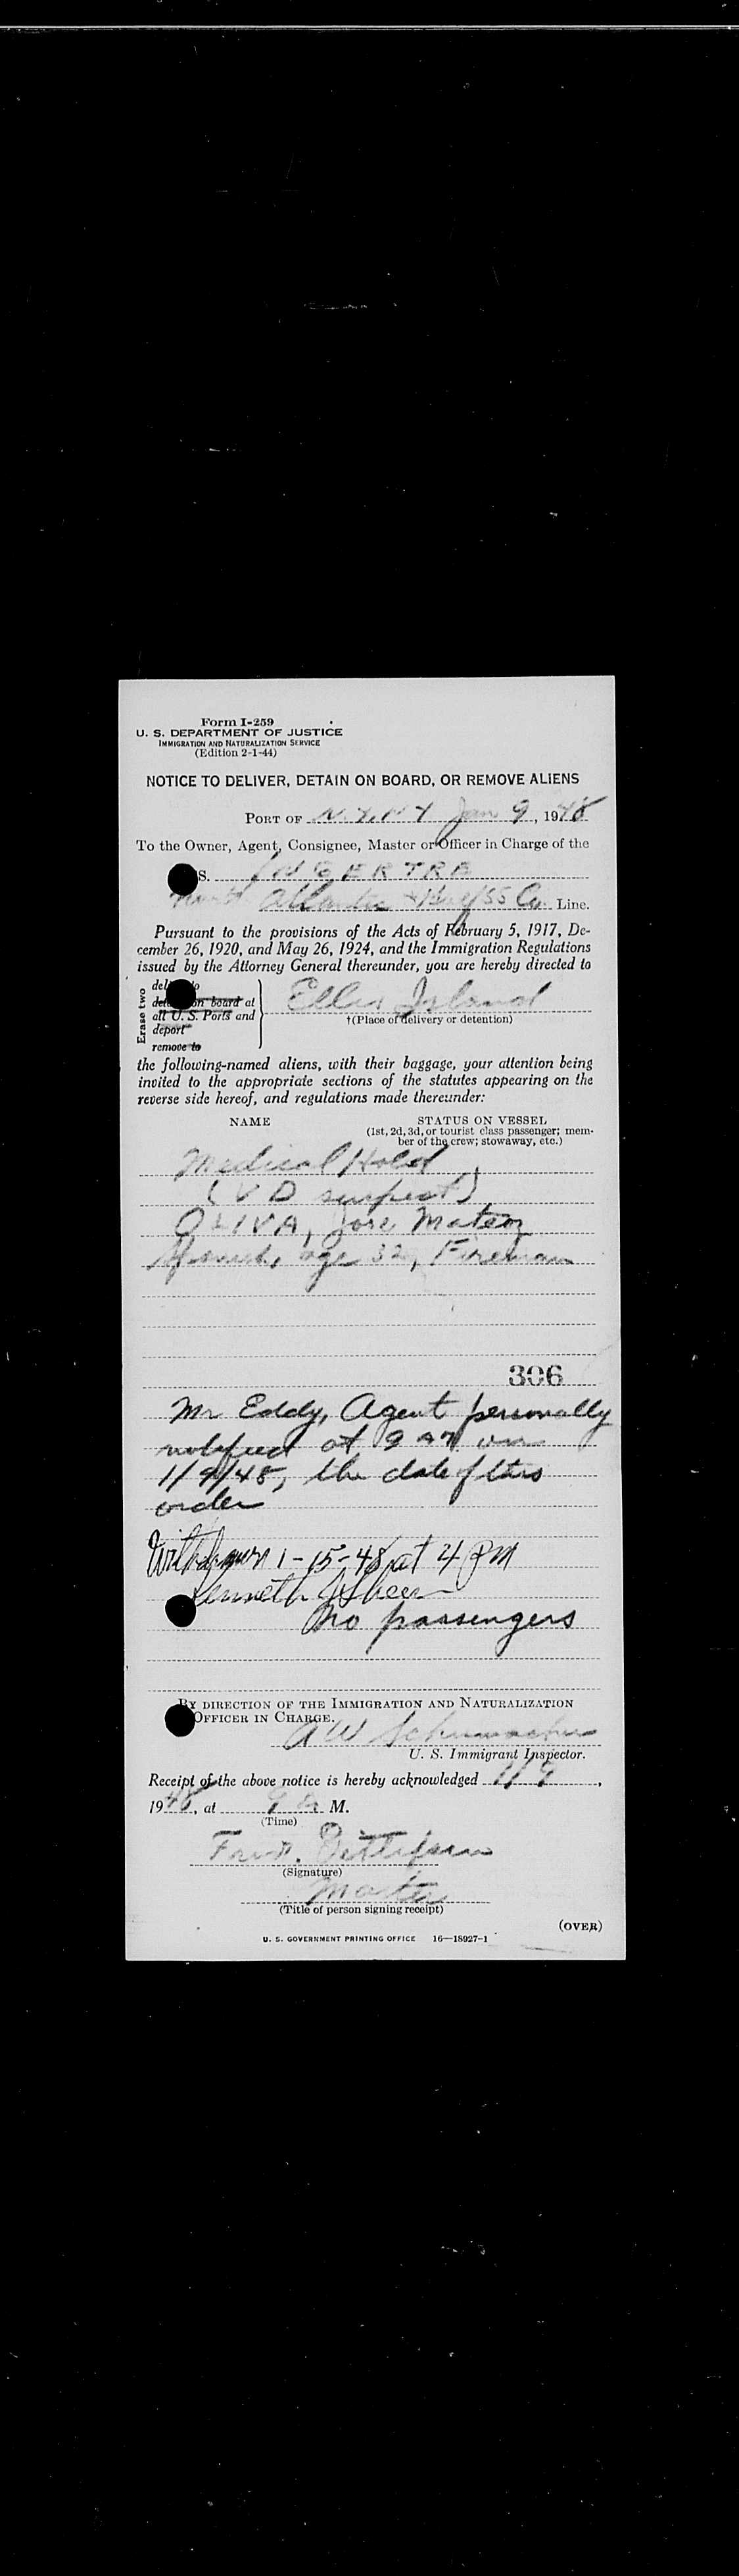 Form I-259
U. S. DEPARTMENT OF JUSTICE
IMMIGRATION AND NATURALIZATION SERVICE
(Edition 2-1-44)
NOTICE TO DELIVER, DETAIN ON BOARD, OR REMOVE ALIENS
PORT OF N.Y., N Y Jan 9, 1948
To the Owner, Agent, Consignee, Master or Officer in Charge of the
S. INGERTRE
North Atlantic + Co. Line.
Pursuant to the provisions of the Acts of February 5, 1917, De-
cember 26, 1920, and May 26, 1924, and the Immigration Regulations
issued by the Attorney General thereunder, you are hereby directed to
Erase two
to
on board at
all U. S. Ports and
deport
remove to
Ellis Island
†(Place of delivery or detention)
the following-named aliens, with their baggage, your attention being
invited to the appropriate sections of the statutes appearing on the
reverse side hereof, and regulations made thereunder:
NAME STATUS ON VESSEL
(1st, 2d, 3d, or tourist class passenger; mem-
ber of the crew; stowaway, etc.)
Medical Hold
(V D suspect)
OLIVA, Jose Mateo
age 32, Fireman
306
Mr Eddy, Agent personally
notified at 9 AM on
1/9/48, the date of this
order
Withdrawn 1-15-48 at 4 PM
Kenneth
No passengers
BY DIRECTION OF THE IMMIGRATION AND NATURALIZATION
OFFICER IN CHARGE.
A W Schumacher
U. S. Immigrant Inspector.
Receipt of the above notice is hereby acknowledged 1/9,
1948, at 9 a M.
(Time)
(Signature)
Master
(Title of person signing receipt)
(OVER)
U. S. GOVERNMENT PRINTING OFFICE 16—18927-1